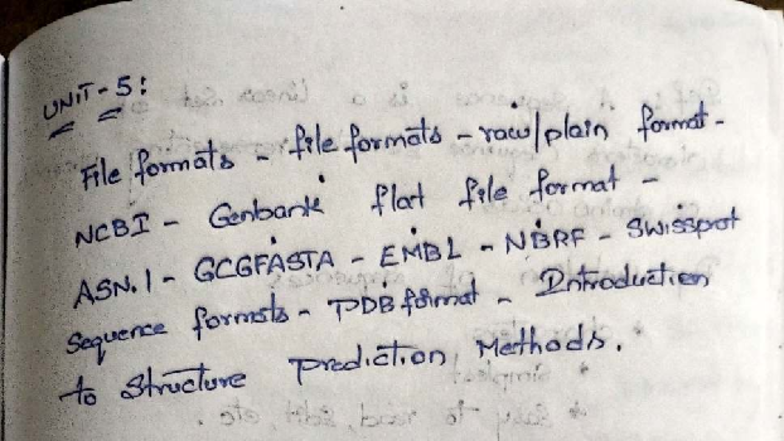 UNIT - 5:
File formats - file formats - raw/plain format -
NCBI - Genbank flat file format -
ASN.1 - GCGFASTA - EMBL - NBRF - Swissprot
Sequence formats - PDB format - Introduction
to Structure prediction Methods.